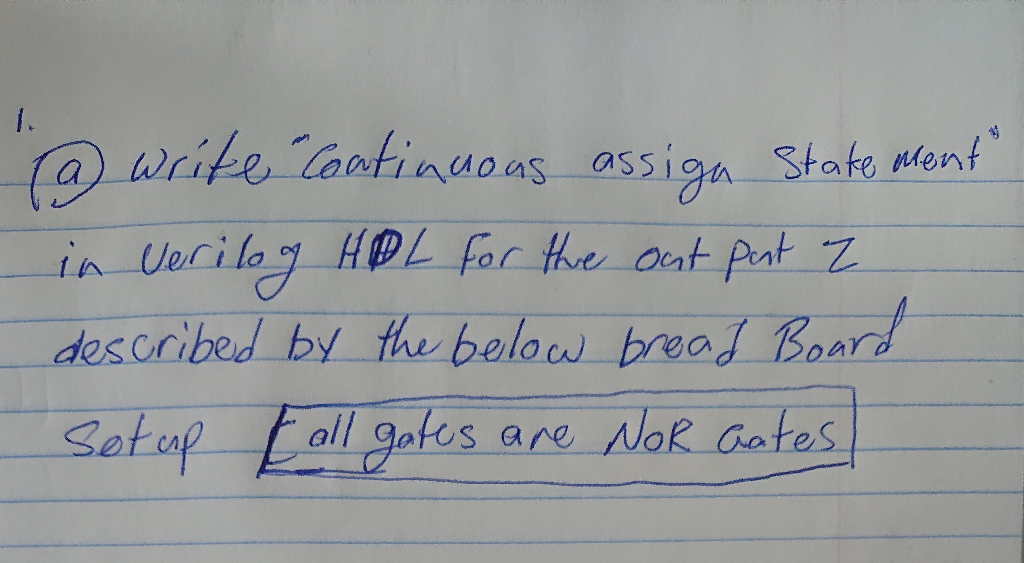 1.
(a) Write "Continuous assign Statement"
in Verilog HDL for the out put Z
described by the below bread Board
Setup [all gates are NOR Gates]